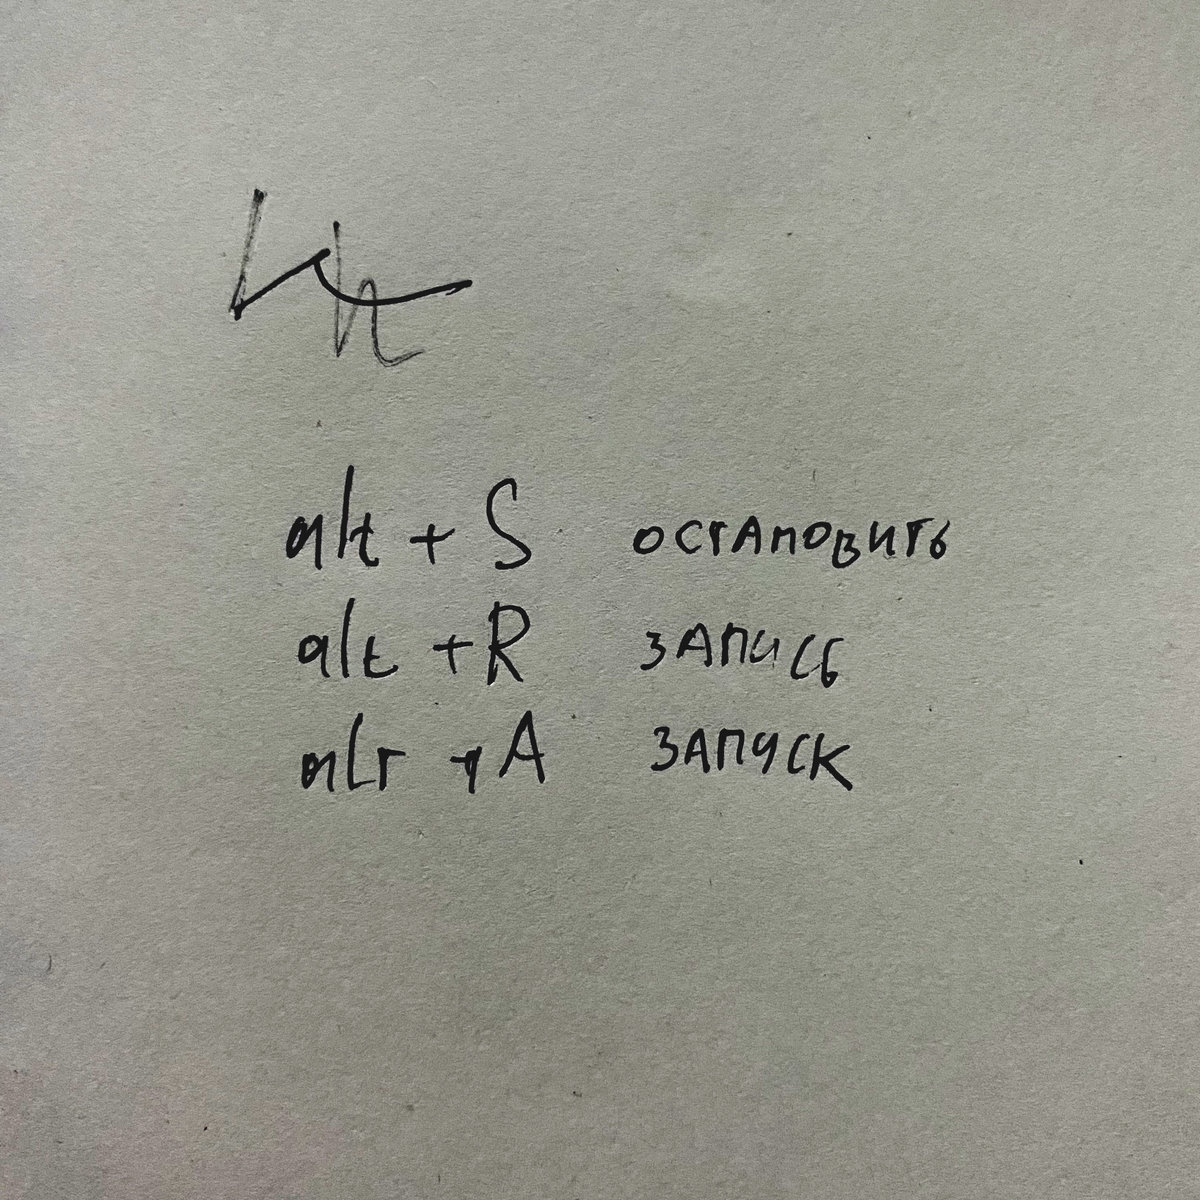 alt + S остановить
alt + R запись
alt + A запуск